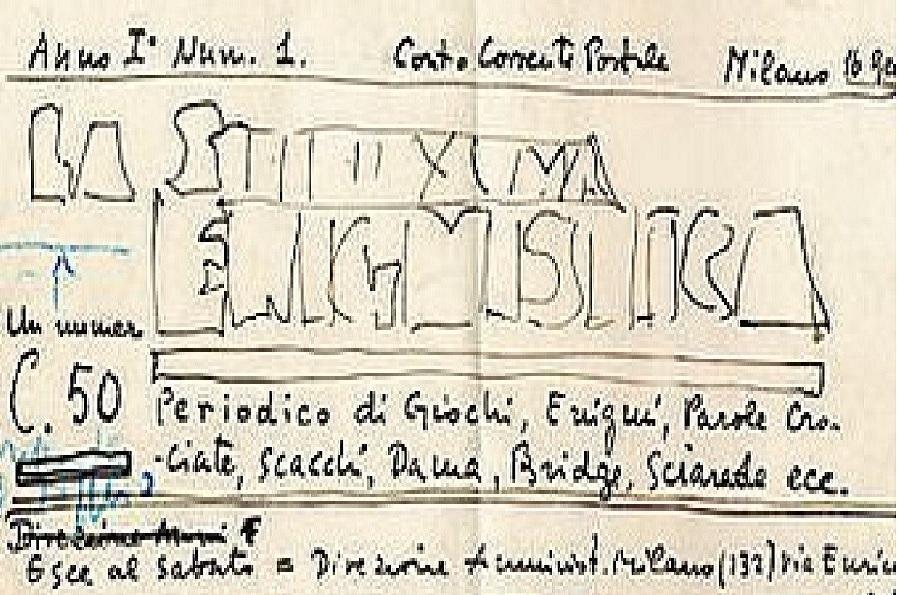 Anno I° Num. 1. Conto Corrente Postale Milano 16 ge
LA SETTIMANA
ENIGMISTICA
Un numer
C. 50
Periodico di Giochi, Enigmi, Parole Cro-
-ciate, Scacchi, Dama, Bridge, Sciarade ecc.
Direzione Ammi
Esce al Sabato = Direzione Amminist. Milano (132) Via Enri